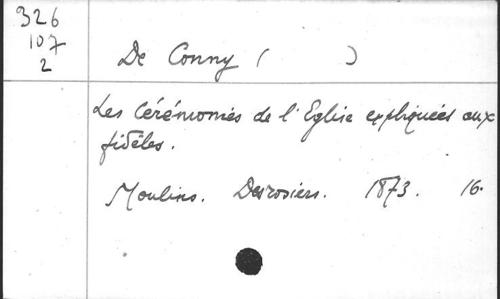 326
107
2
De Conny ( )
Les Cérémonies de l'Eglise expliquées aux
fidèles.
Moulins. Desrosiers. 1873. 16.